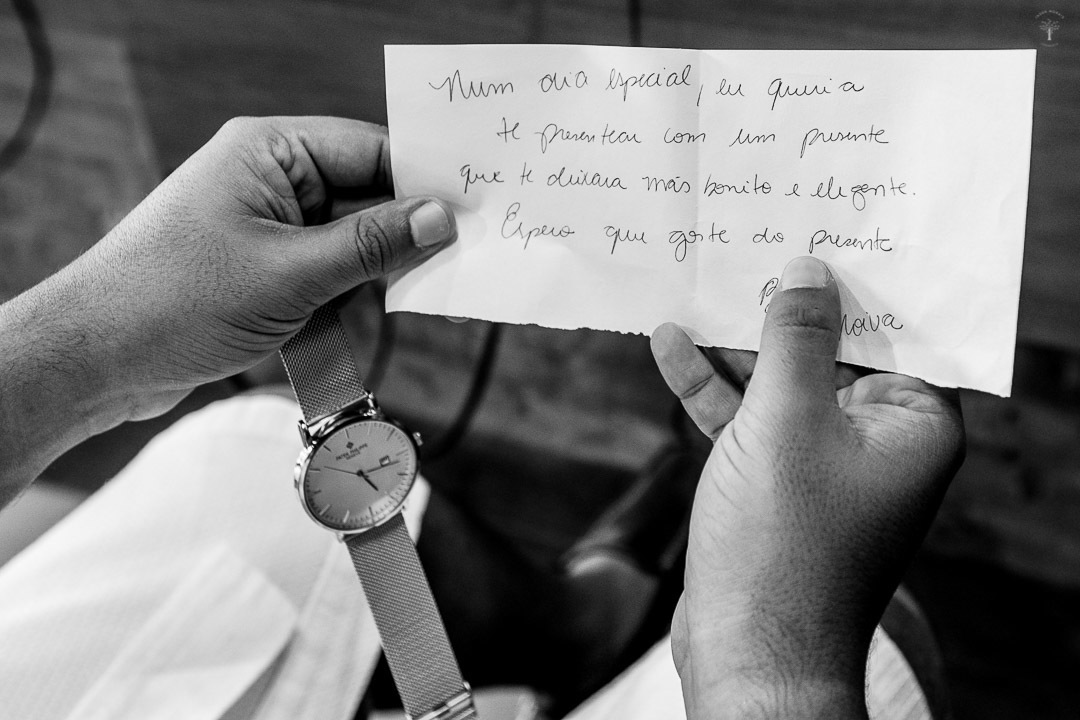 Num dia especial, eu queria
te presentear com um presente
que te deixara más bonito e elegante.
Espero que goste do presente
noiva
PATEK PHILIPPE